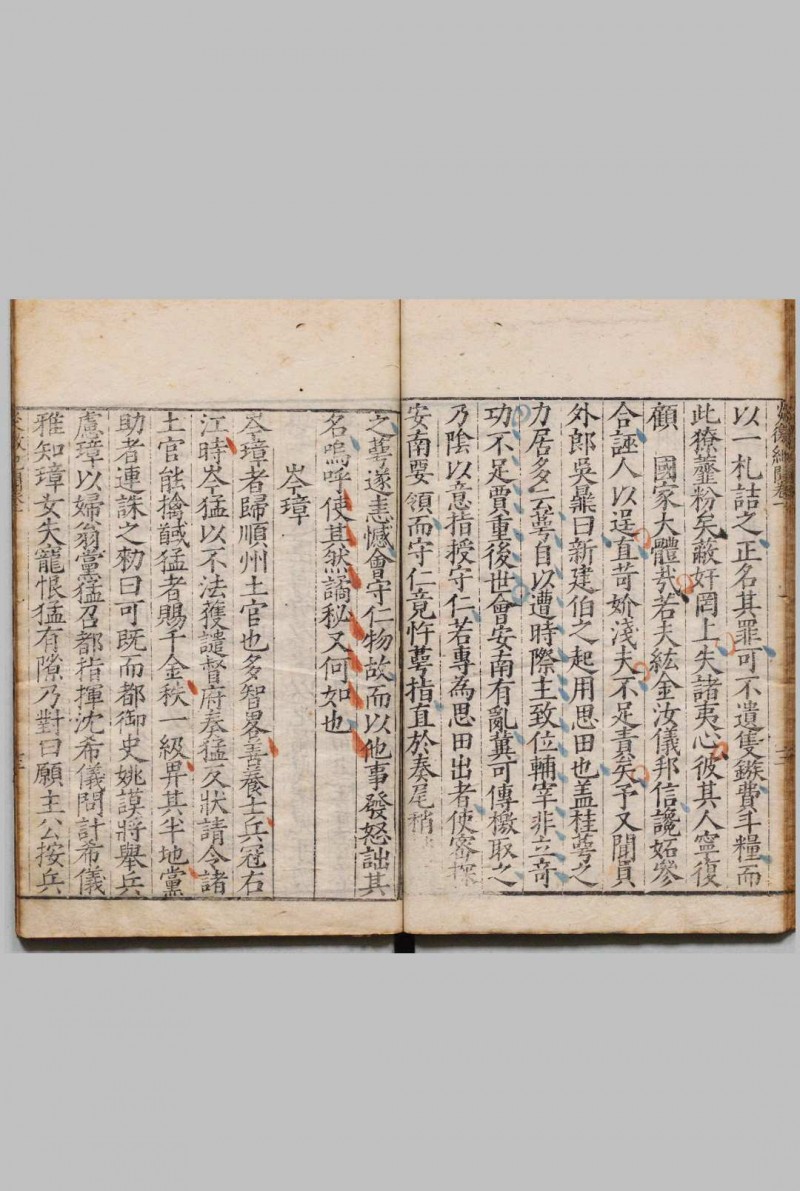 以一札詰之正名其罪可不遺隻鏃費斗糧而
此獠虀粉矣蔽奸罔上失諸夷心彼其人寧復
顧　國家大體哉若夫紘金汝儀邦信讒妬參
合誣人以逞直苛妎淺夫不足責矣予又聞員
外郎吳鼎曰新建伯之起用思田也盖桂蕚之
力居多云蕚自以遭時際主致位輔宰非立竒
功不足賈重後世會安南有亂冀可傳檄取之
乃陰以意指授守仁若專為思田出者使密探
安南要領而守仁竟忤蕚指直於奏尾稍
之蕚遂恚憾會守仁物故而以他事發怒詘其
名嗚呼使其然譎秘又何如也
岑璋
岑璋者歸順州土官也多智畧善養士兵冠右
江時岑猛以不法獲譴督府奏猛反狀請令諸
土官能擒馘猛者賜千金秩一級畀其半地黨
助者連誅之勑曰可既而都御史姚謨將舉兵
慮璋以婦翁黨猛召都指揮沈希儀問計希儀
雅知璋女失寵恨猛有隙乃對曰願主公按兵